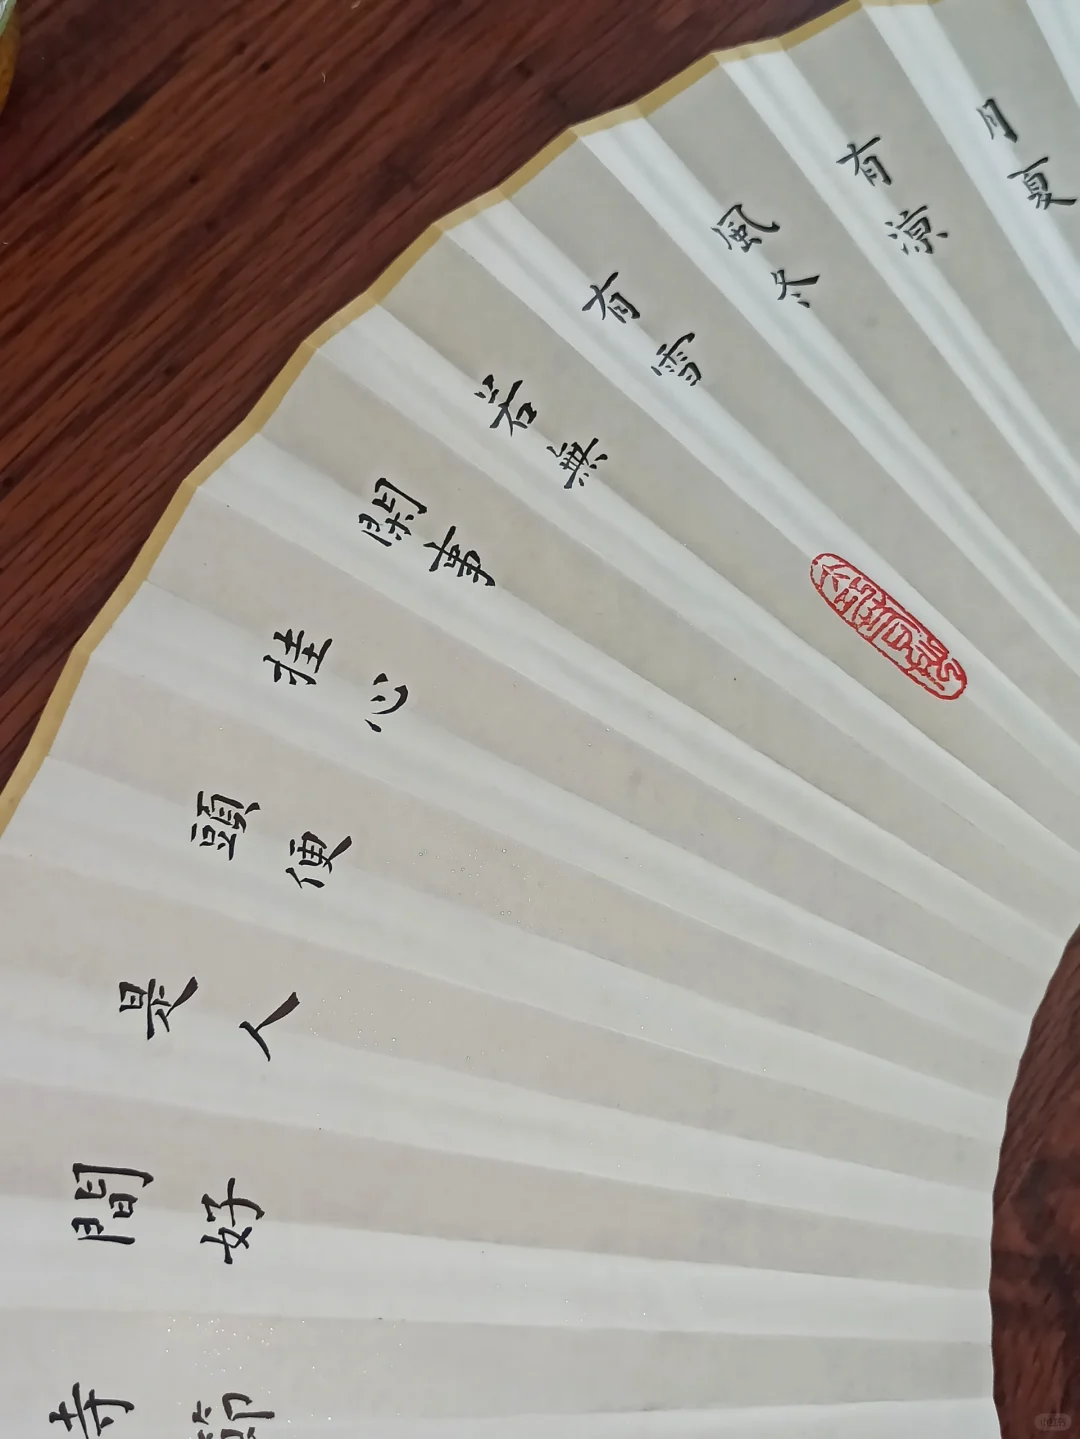 月夏
有涼
風冬
有雪
若無
閑事
挂心
頭便
是人
間好
時節